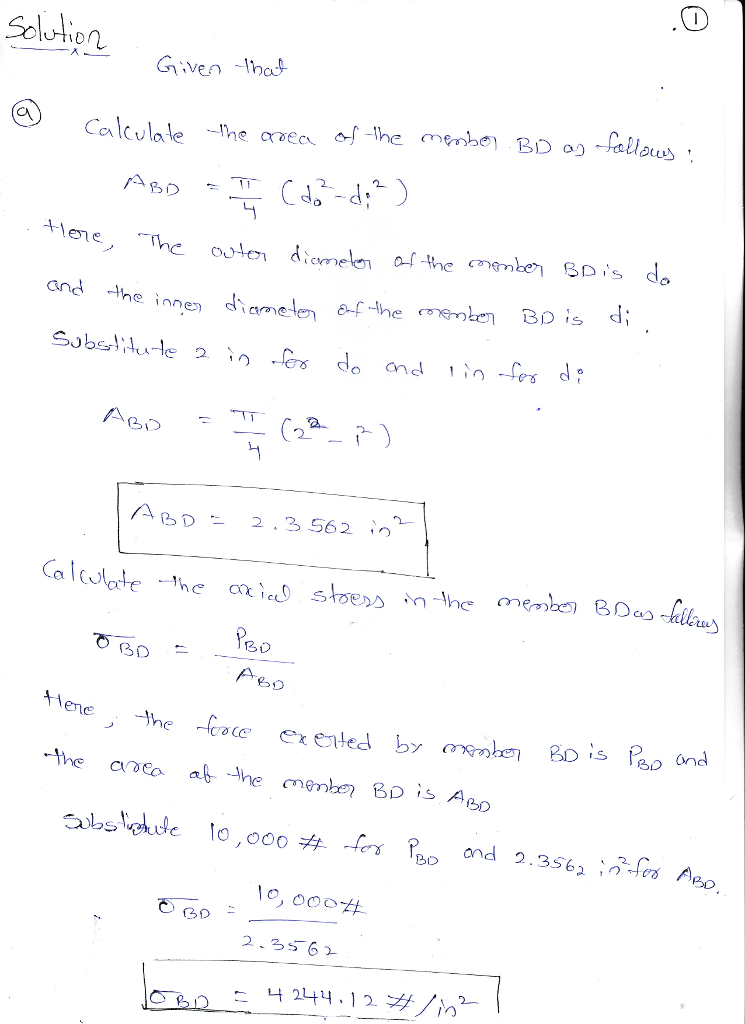 Solution
①
Given that
ⓐ Calculate the area of the member BD as follows :
A_BD = π/4 (do² - di²)
Here, The outer diameter of the member BD is do
and the inner diameter of the member BD is di .
Substitute 2 in for do and 1 in for di
A_BD = π/4 (2² - 1²)
A_BD = 2.3562 in²
Calculate the axial stress in the member BD as follows
σ_BD = P_BD / A_BD
Here, the force exerted by member BD is P_BD and
the area of the member BD is A_BD
Substitute 10,000 # for P_BD and 2.3562 in² for A_BD.
σ_BD = 10,000# / 2.3562
σ_BD = 4244.12 #/in²